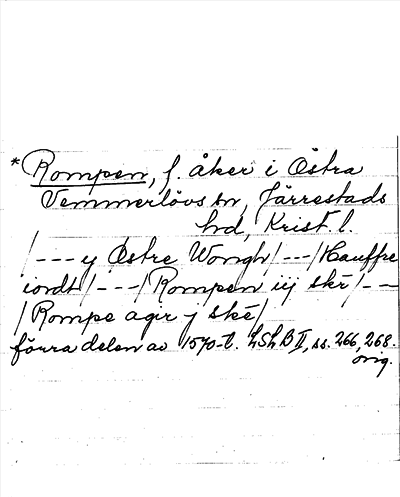 * Rompen, f. åker i Östra
Vemmerlövs sn, Järrestads
hd, Krist. l.
/--- y Østre Wongh/---/Hauffre
iordt/---/Rompen iij skē/--
/Rompe agir j skē/
förra delen av 1570-t. LSLB II, ss. 266, 268.
orig.